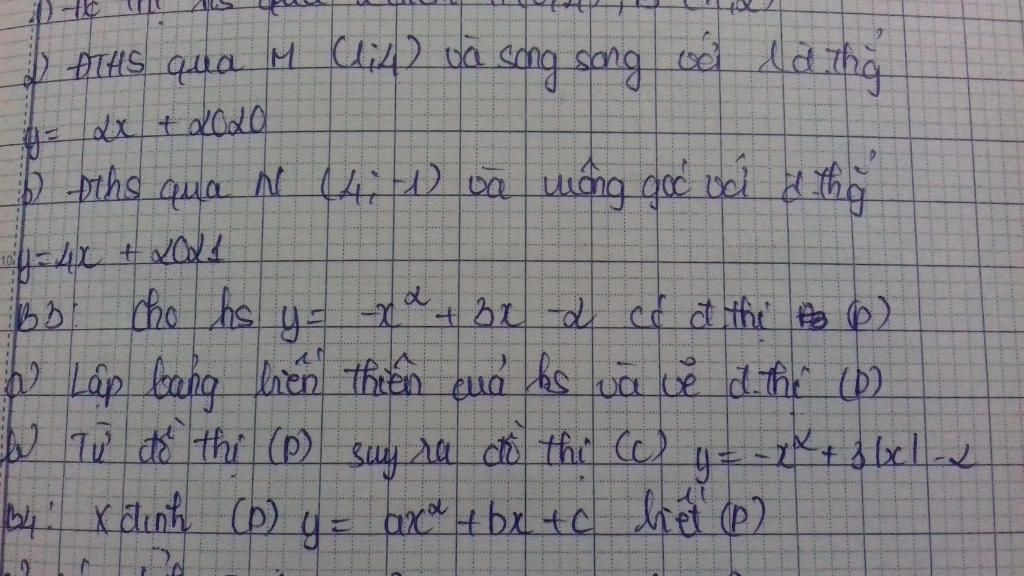 d) ĐTHS qua M (1;4) và song song với 1 đ thẳ
y = 2x + 2020
b) Đths qua N (4; -1) và vuông góc với đ thẳ
y = 4x + 2021
B3: Cho hs y = -x² + 3x - 2 có đ thị (P)
a) Lập bảng biến thiên của hs và vẽ đ.thị (P)
b) Từ đồ thị (P) suy ra đồ thị (C) y = -x² + 3|x| - 2
B4: X định (P) y = ax² + bx + c biết (P)